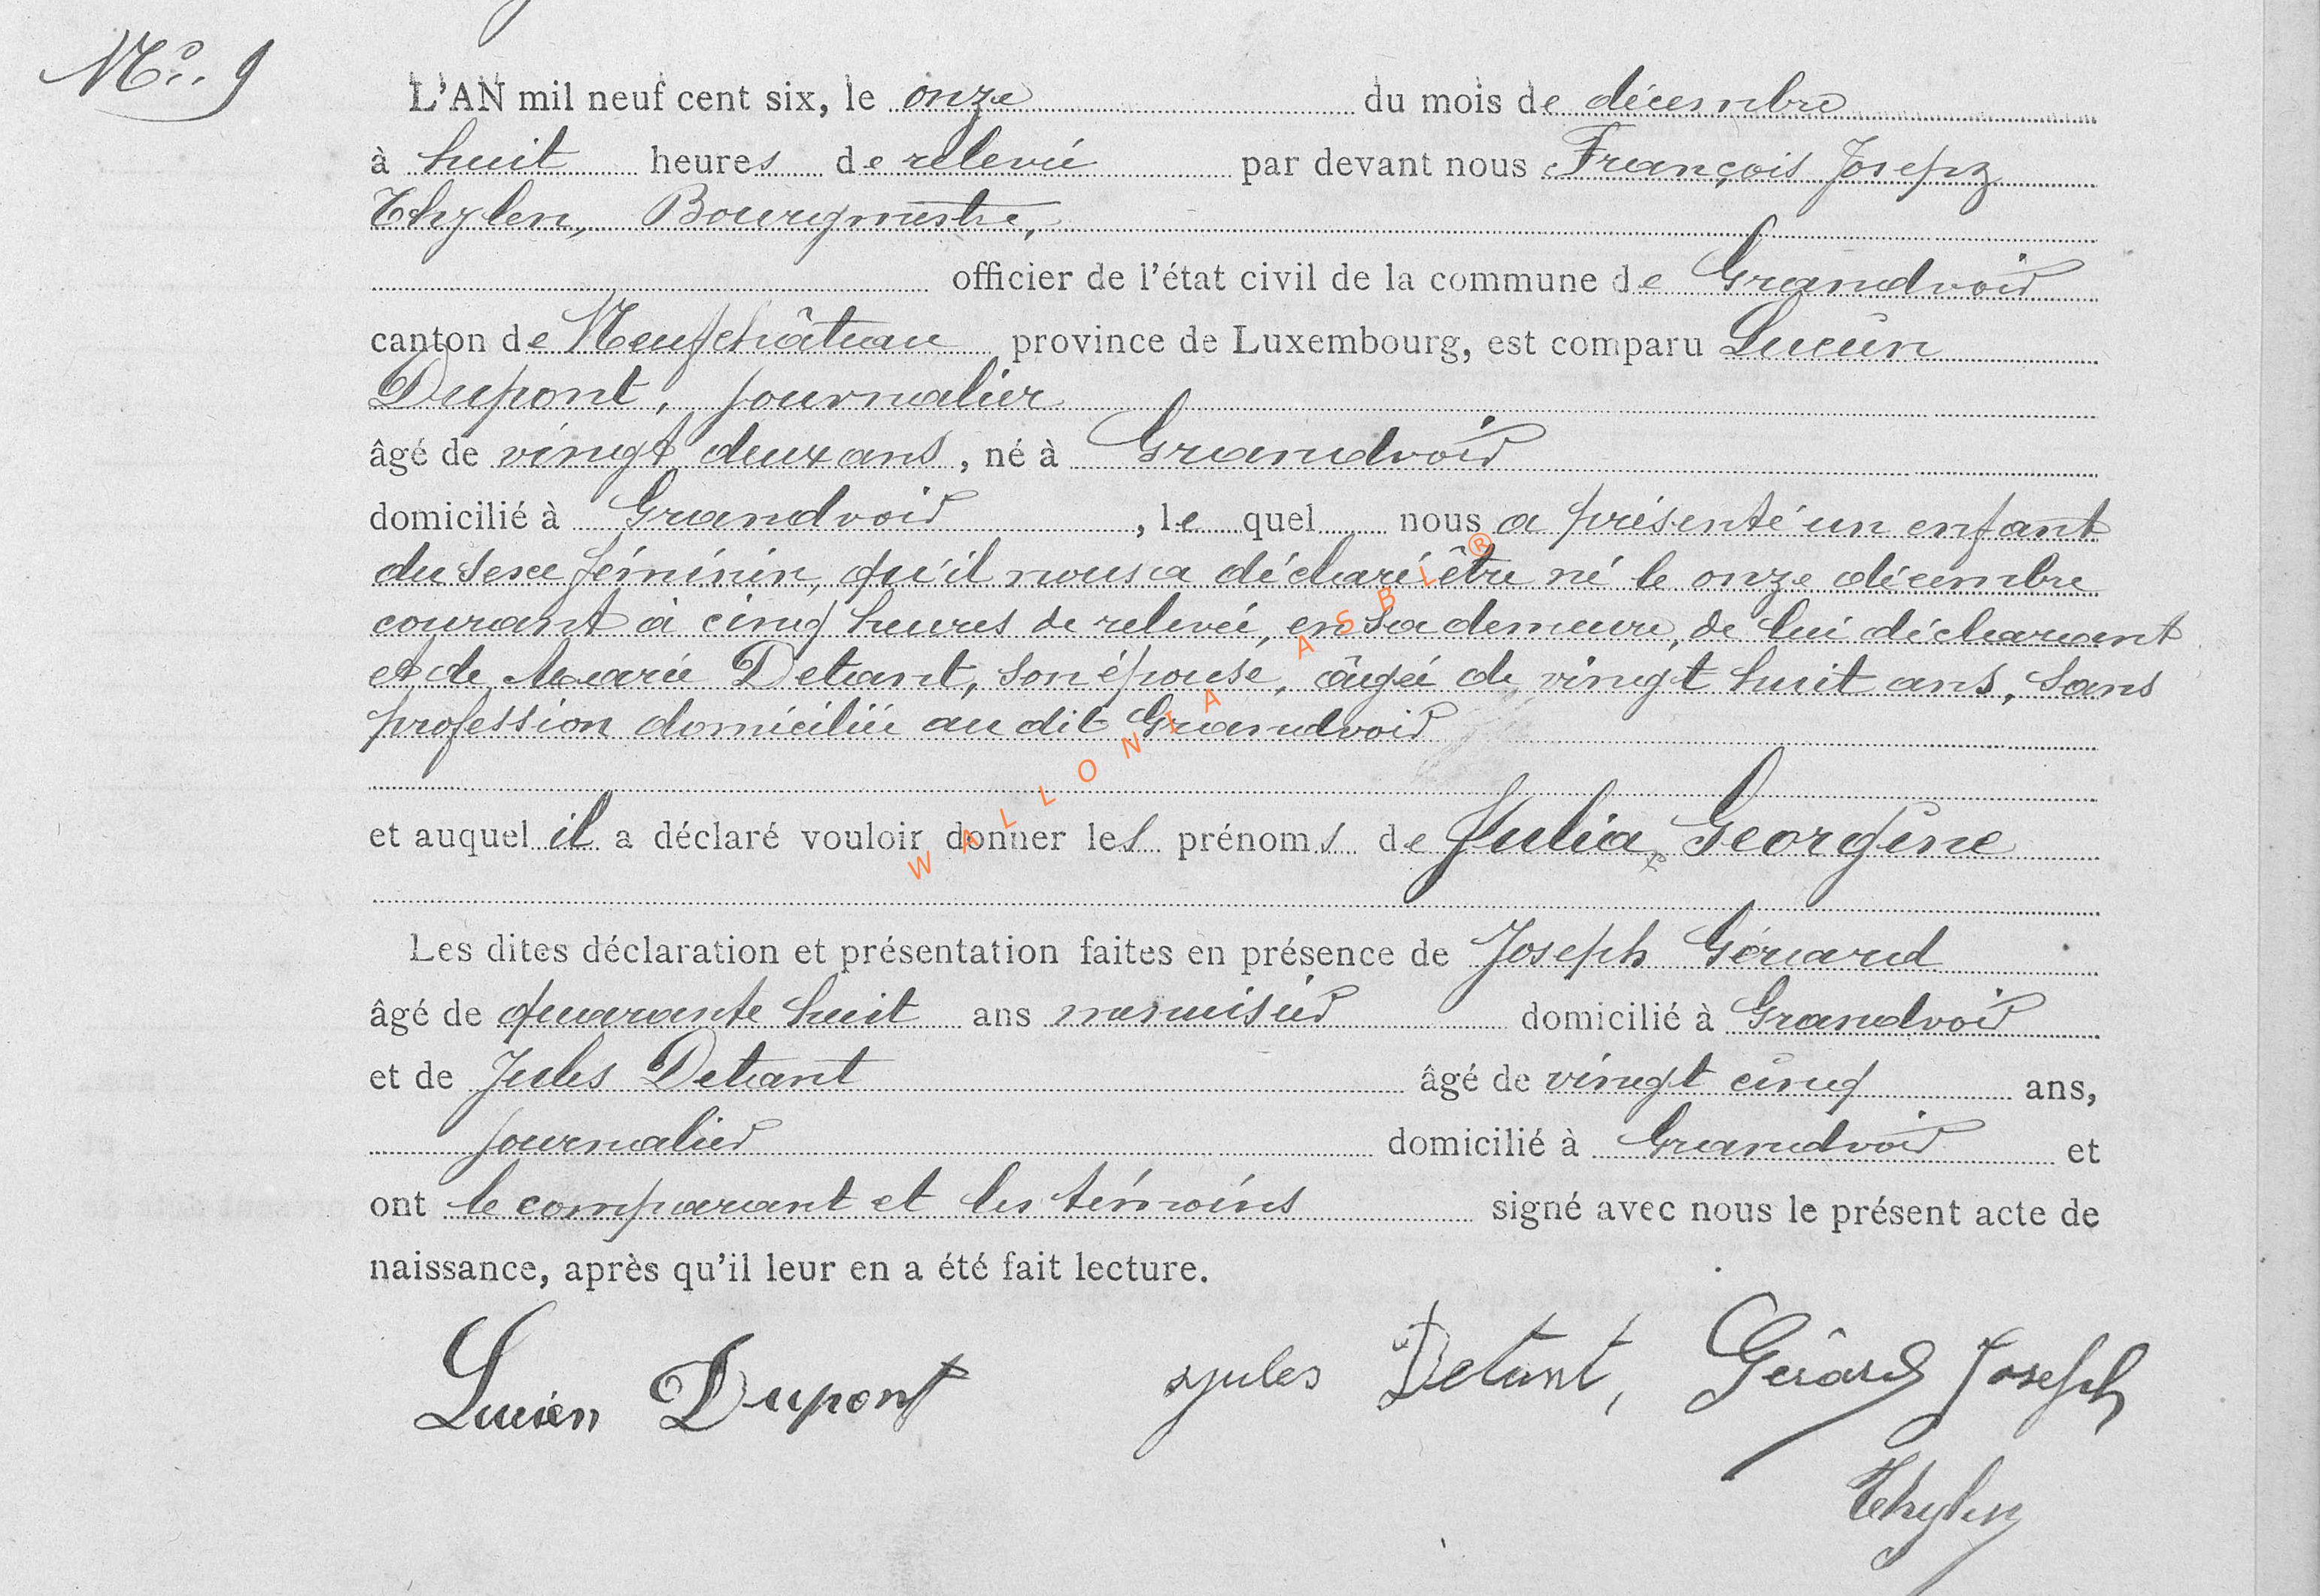 No. 9
L'AN mil neuf cent six, le onze du mois de décembre
à huit heures de relevée par devant nous François Joseph
Thylen, Bourgmestre,
officier de l'état civil de la commune de Grandvoir
canton de Neufchâteau province de Luxembourg, est comparu Lucien
Dupont, journalier
âgé de vingt deux ans, né à Grandvoir
domicilié à Grandvoir, le quel nous a présenté un enfant
du sexe féminin, qu'il nous a déclaré être né le onze décembre
courant à cinq heures de relevée, en sa demeure, de lui déclarant
et de Marie Detant, son épouse, âgée de vingt huit ans, sans
profession domiciliée au dit Grandvoir
et auquel il a déclaré vouloir donner les prénoms de Julia, Georgine
Les dites déclaration et présentation faites en présence de Joseph Gérard
âgé de quarante huit ans menuisier domicilié à Grandvoir
et de Jules Detant âgé de vingt cinq ans,
journalier domicilié à Grandvoir et
ont le comparant et les témoins signé avec nous le présent acte de
naissance, après qu'il leur en a été fait lecture.
Lucien Dupont Jules Detant, Gérard Joseph
Thylen
WALLONIA ASBL ®